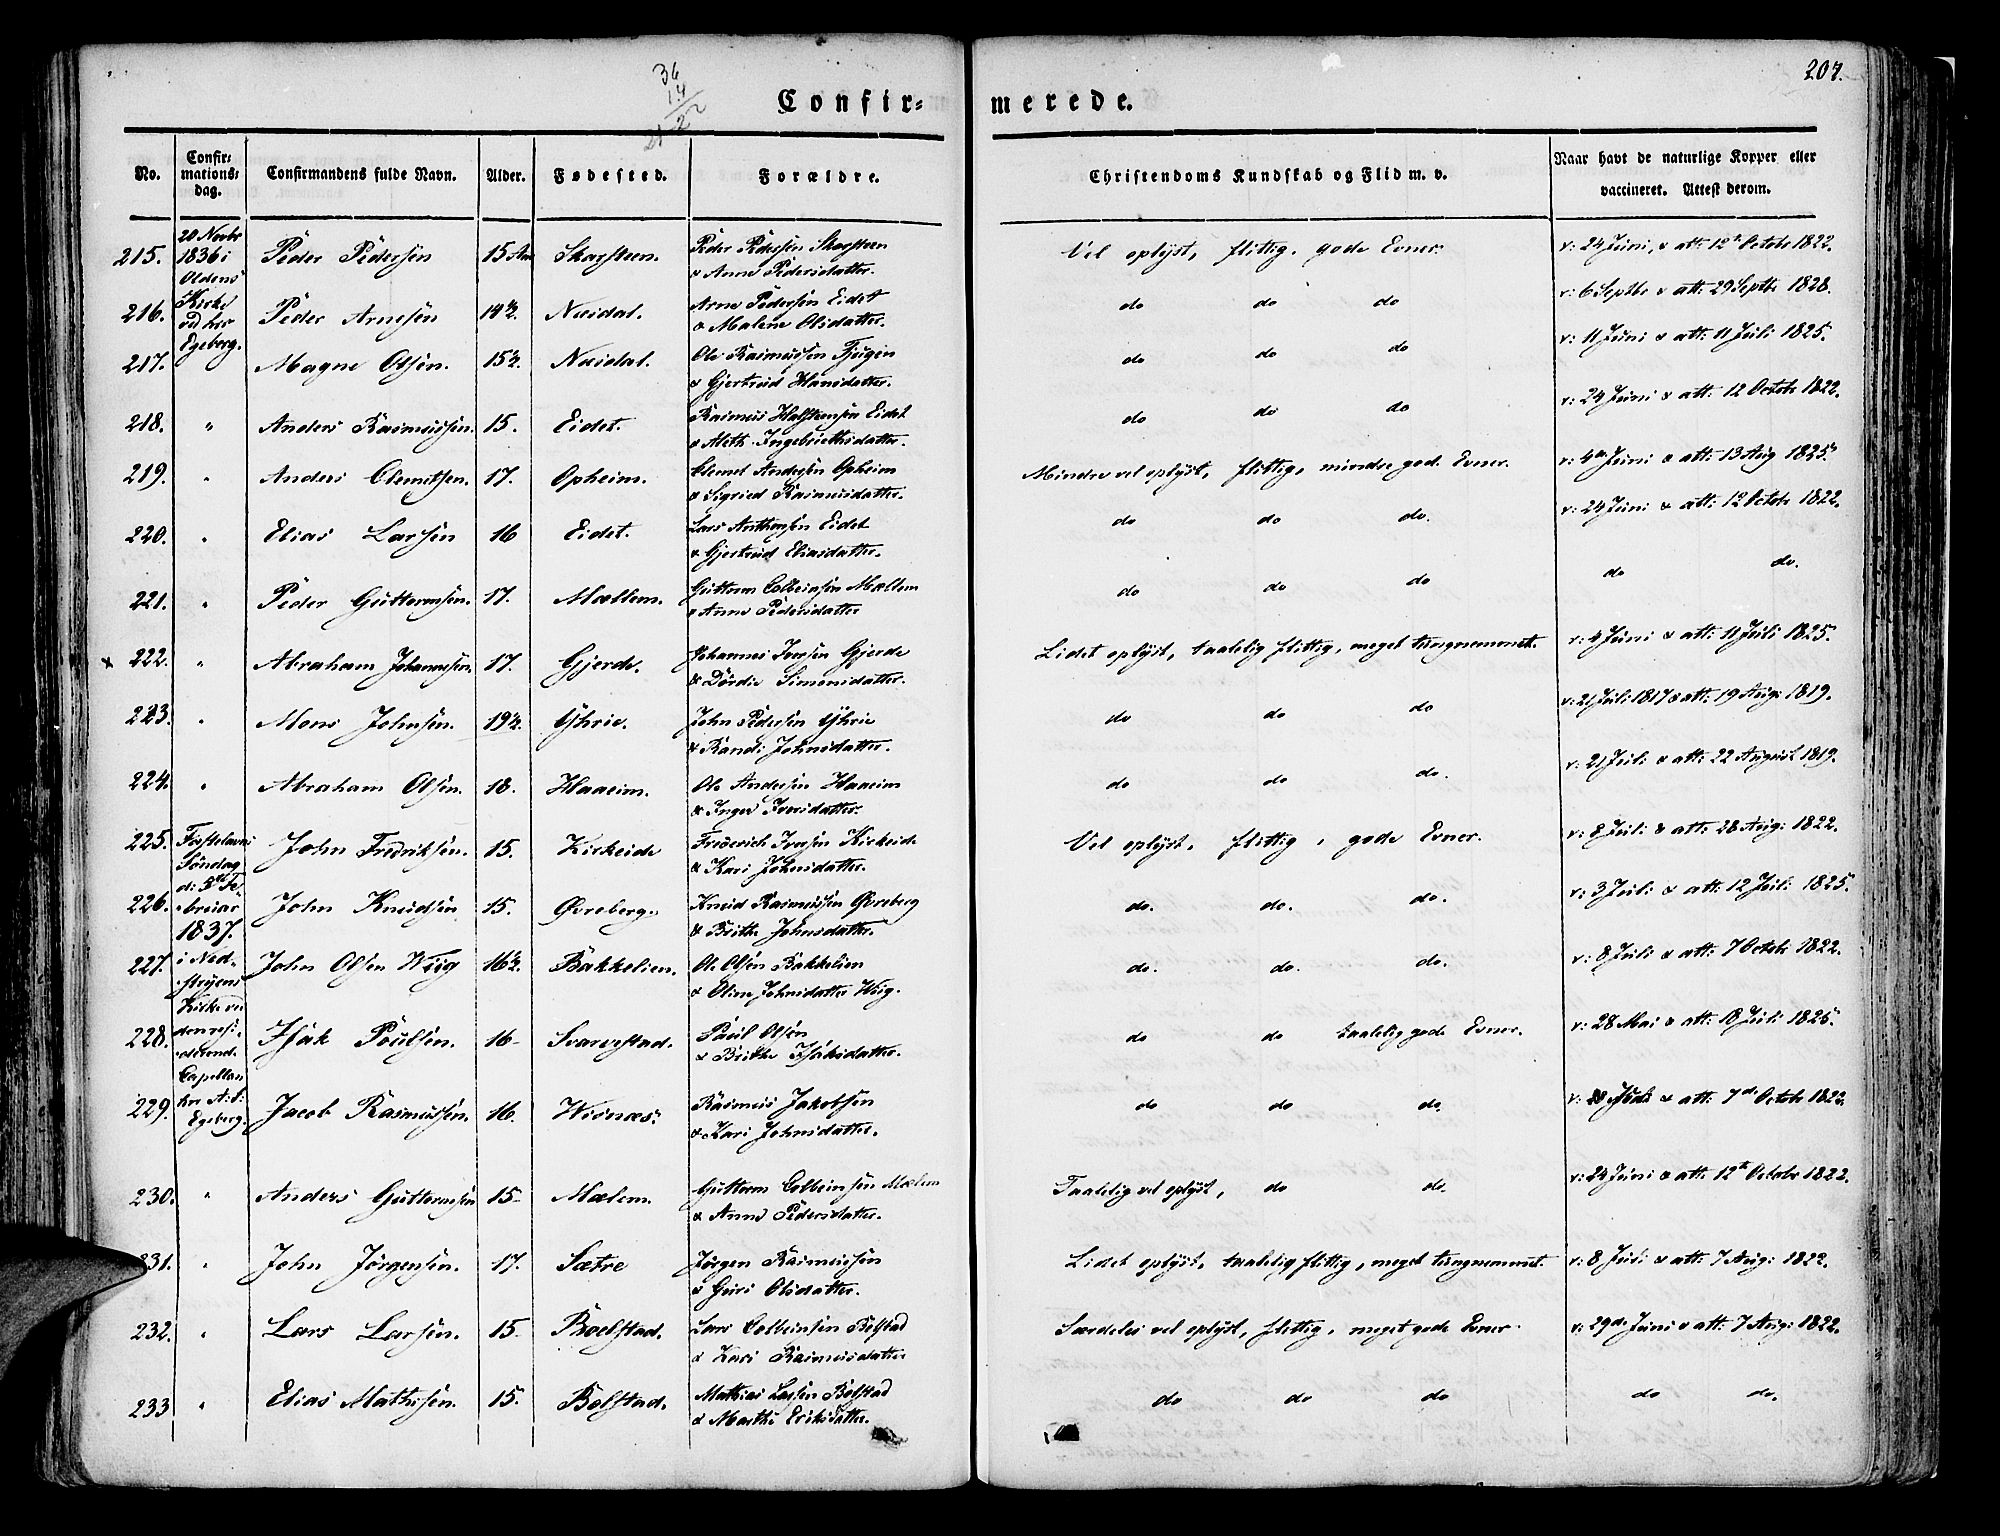 207.
36
14
Confir=
merede.
No.
Confir=
mations=
dag.
Confirmandens fulde Navn.
Alder.
Fødested.
Forældre.
Christendoms Kundskab og Flid m. v.
Naar havt de naturlige Kopper eller
vaccineret. Attest derom.
20 Novbr
1836 i
Oldens
Kirke
ved hr
Egeberg.
215. Peder Pedersen 15 Skarsteen. Peder Pedersen Skarsteen
& Anne Pedersdatter. Vel oplyst, flittig, gode Evner. v: 24 Juni, & att: 12te Octobr 1822.
216. Peder Arnesen 14½. Næsdal. Arne Pedersen Eidet
& Malene Olsdatter. do do do v: 6 Septbr & att: 29 Septbr 1828.
217. Magne Olsen. 15½. Næsdal. Ole Rasmussen Tjugen
& Gjertrud Hansdatter. do do do v: 11 Juni & att: 11 Juli 1825.
218. " Anders Rasmussen. 15. Eidet. Rasmus Halsteensen Eidet
& Aleth. Ingebrethsdatter. do do do v: 24 Juni & att: 12 Octobr 1822.
219. " Anders Clemetsen. 17. Opheim. Clemet Andersen Opheim
& Sigried Rasmusdatter. Mindre vel oplyst, flittig, mindre god. Evner. v: 4de Juni & att: 13 Aug 1825.
220. " Elias Larsen 16 Eidet. Lars Anthonsen Eidet
& Gjertrud Eliasdatter. do do do. v: 24 Juni & att: 12 Octobr 1822.
221. " Peder Guttormsen. 17. Mællem. Guttorm Colbeinsen Mællem
& Anne Pedersdatter do do do do do.
x 222. " Abraham Johannesen. 17. Gjerde. Johannes Iversen Gjerde
& Dørdie Simonsdatter. Lidet oplyst, taalelig flittig, meget tungnemmet. v: 4 Juni & att: 11 Juli 1825.
223. " Mons Johnsen. 19½. Yhrie. John Pedersen Yhrie
& Randi Johnsdatter. do do do v: 21 Juli 1817 & att: 19 Aug: 1819.
224. " Abraham Olsen. 18. Haaeim. Ole Andersen Haaeim
& Inger Iversdatter. do do do. v: 21 Juli & att: 22 August 1819.
Fastelavns
Søndag
d: 5te Fe-
-bruar
1837.
i Ned-
-strÿens
Kirke ved
den resi-
-derend.
Capellan
hr A: F:
Egeberg.
225. John Fredriksen. 15. Kirkeide Friderich Iversen Kirkeide
& Kari Johnsdatter. Vel oplyst, flittig, gode Evner. v: 8 Juli & att: 28 Aug: 1822.
226. John Knudsen 15. Øvreberg. Knud Rasmussen Øvreberg
& Brithe Johnsdatter. do. do. do. v: 3 Juli & att: 12 Juli 1825.
227. John Olsen Wiig 16½. Bakkelien. Ole Olsen Bakkelien
& Oline Johnsdatter Wiig. do. do. do. v: 8 Juli & att: 7 Octobr 1822.
228. Isak Poulsen. 16 Svarestad. Paul Olsen
& Brithe Isaksdatter. do do taalelig gode Evner. v: 28 Mai & att: 18 Juli 1825.
229. Jacob Rasmussen. 16. Wisnæs. Rasmus Jakobsen
& Kari Johnsdatter. do do do. v: 8 Juli & att: 7de Octobr 1822.
230. " Anders Guttormsen 15 Mælem. Guttorm Colbeinsen Mælem
& Anne Pedersdatter. Taalelig vel oplyst, do do. v: 24 Juni & att: 12te Octobr 1822.
231. " John Jörgensen. 17. Sætre Jörgen Rasmussen
& Guri Olsdatter. Lidet oplyst, taalelig flittig, meget tungnemmet. v: 8 Juli & att: 7 Aug: 1822.
232. " Lars Larsen. 15. Boelstad. Lars Colbeinsen Bolstad
& Kari Rasmusdatter Særdeles vel oplyst, flittig, meget gode Evner. v: 29de Juni & att: 7 Aug: 1822.
233 " Elias Mathisen. 15. Bolstad. Mathias Larsen Bolstad
& Marthe Eriksdatter. do do do do do.